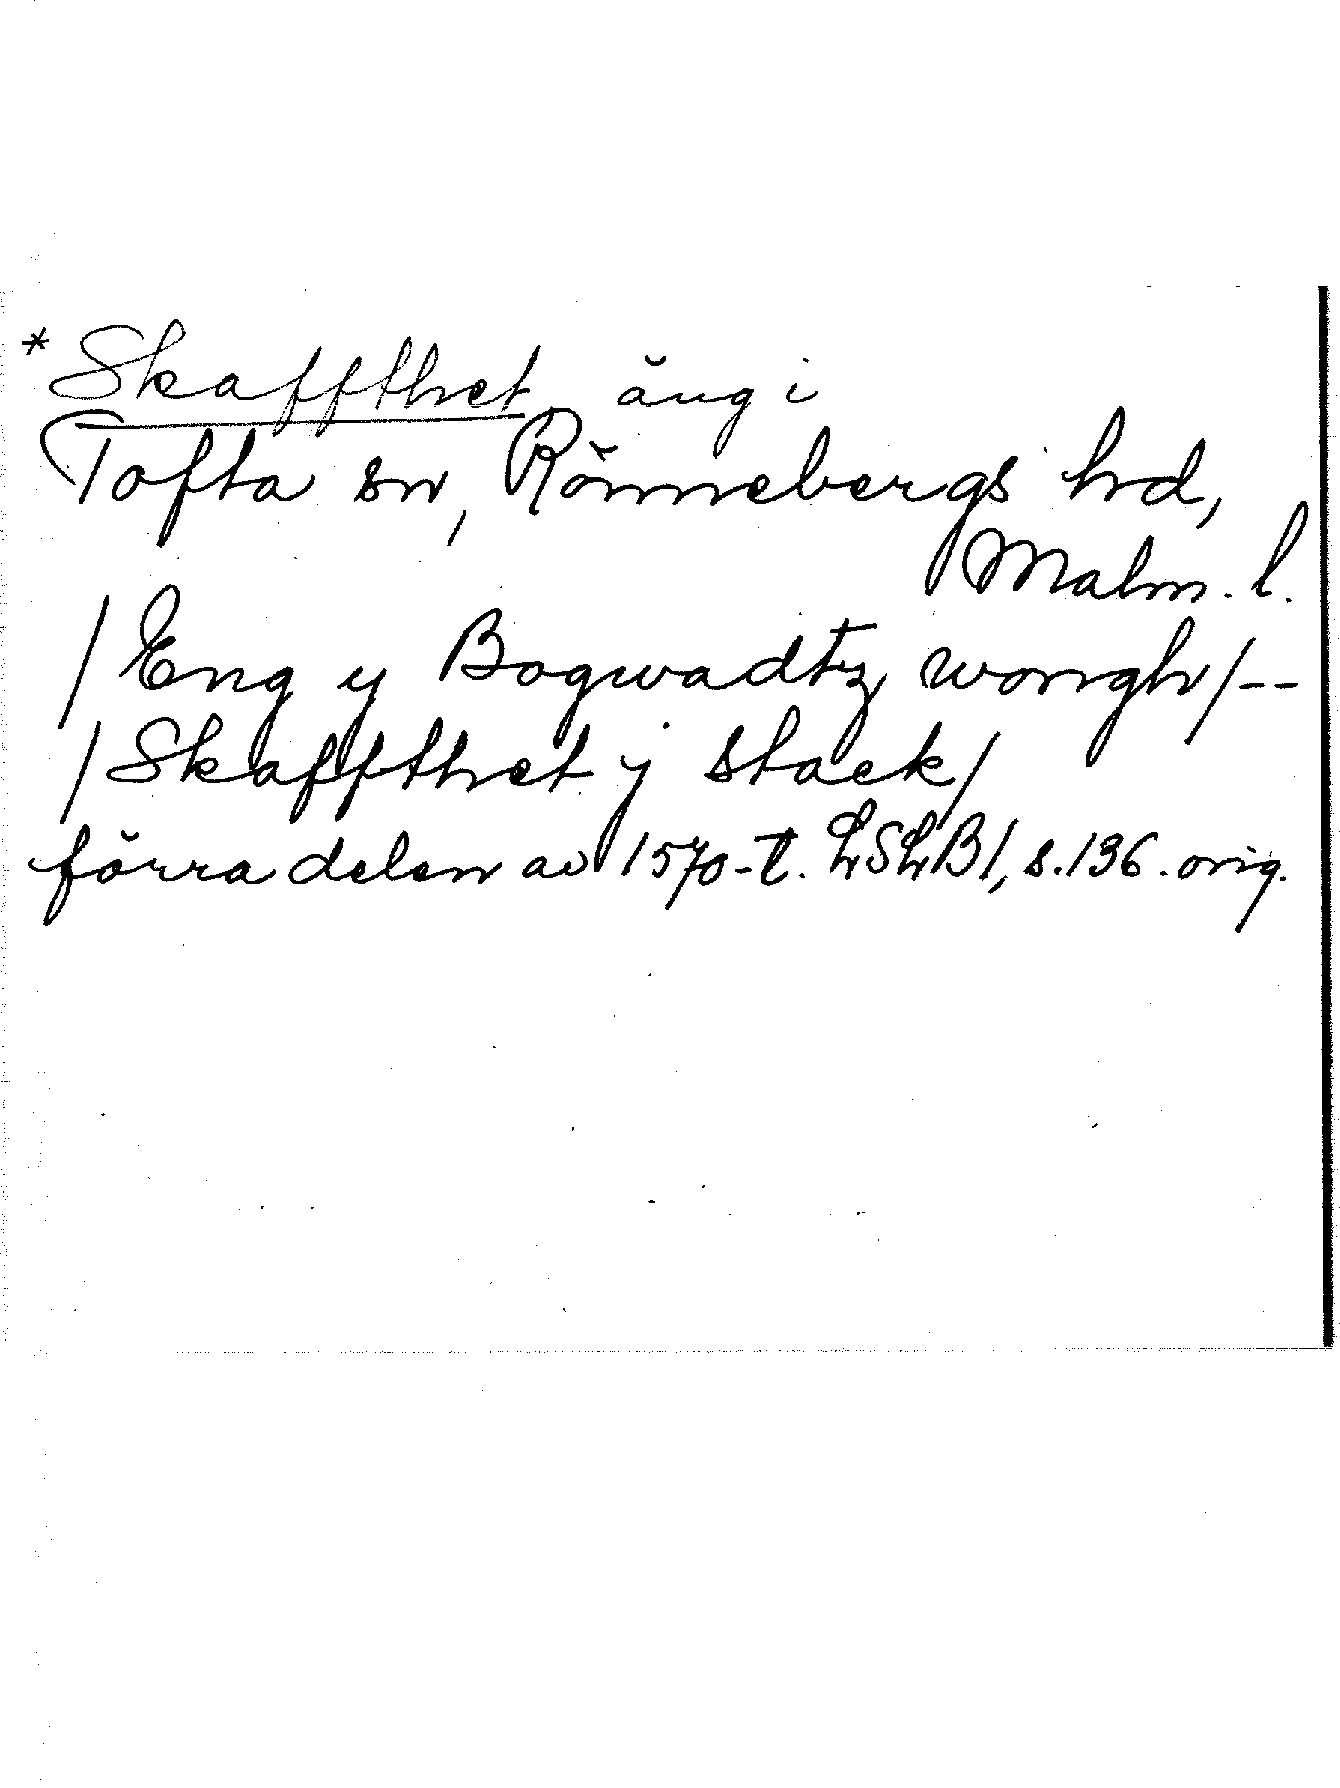 * Skaffthet äng i
Tofta sn, Rönnebergs hd,
Malm. l.
/Eng y Bogwadtz wongh/--
/Skaffthet j stack/
förra delen av 1570-t. LSLB1, s.136. orig.